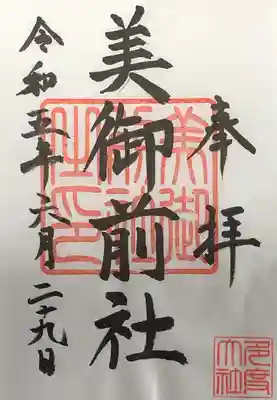 奉拝
美御前社
令和五年六月二十九日
多度
大社